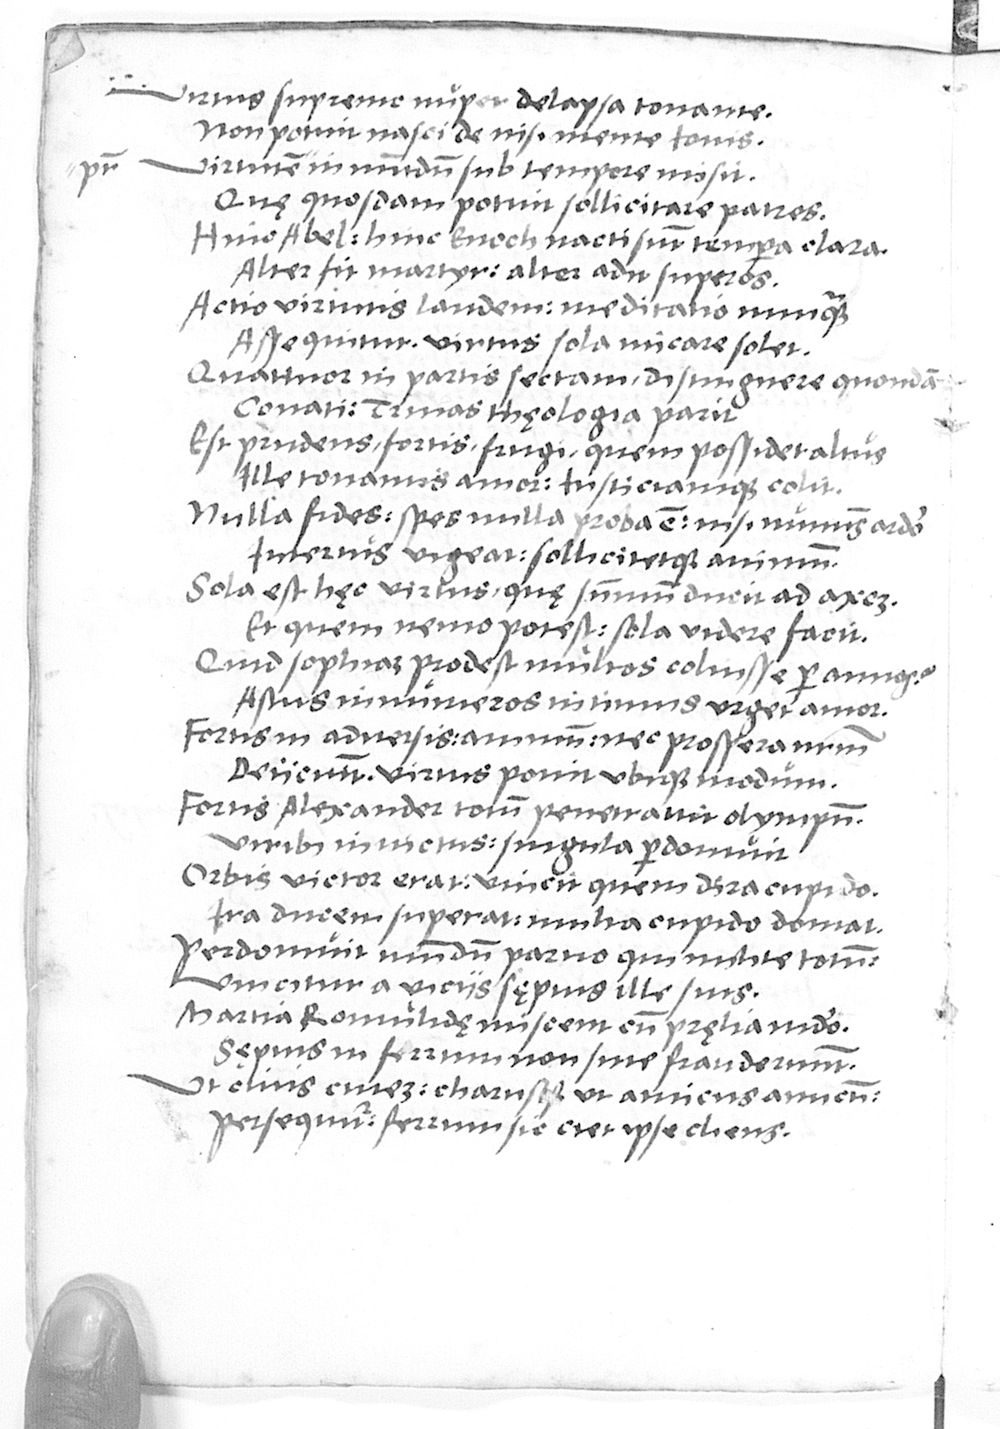 Virtus supremo nuper delapsa tonante.
Non potuit nasci de nisi mente Iovis.
pr̄ Virtutē in mūdū sub tempore misit.
Quę quosdam potuit sollicitare patres.
Hinc Abel: hinc Enoch nacti sūt tempora clara.
Alter fit martyr: alter adit superos.
Actio virtutis laudem: meditatio nunquā
Assequitur. virtus sola micare solet.
Quattuor in partis sectam, distinguere quondā
Conati: Trinas thęologia parit
Est prudens, fortis, frugi, quem possidet altus
Ille tonantis amor: Iusticiamqȝ colit.
Nulla fides: spes nulla proba ē: nisi numinis ardor
Internus vigeat: sollicitetqȝ animū.
Sola est hęc virtus, quę sūmū ducit ad axem.
Et quem nemo potest: sola videre facit.
Quid sophiam prodest multos coluisse per annos?
Astus innumeros intimus urget amor.
Fortis in adversis: animum: nec prospera
Deiiciunt. virtus ponit ubiqȝ modum.
Fortis Alexander totū penetravit olympū.
Viribus invictus: singula perdomuit
Orbis victor erat: vincit quem dira cupido.
Ira ducem superat: multa cupido domat.
Perdomuit mūdū parvo qui milite totū:
Vincitur a viciis sępius ille suis.
Martia Romulidę miscent cū pręlia mūdo.
Sępius in ferrum non sine fraude ruūt.
Ut civis civem: charus ut amicus amicū:
Persequitur: ferrum sic ciet ipse cliens.